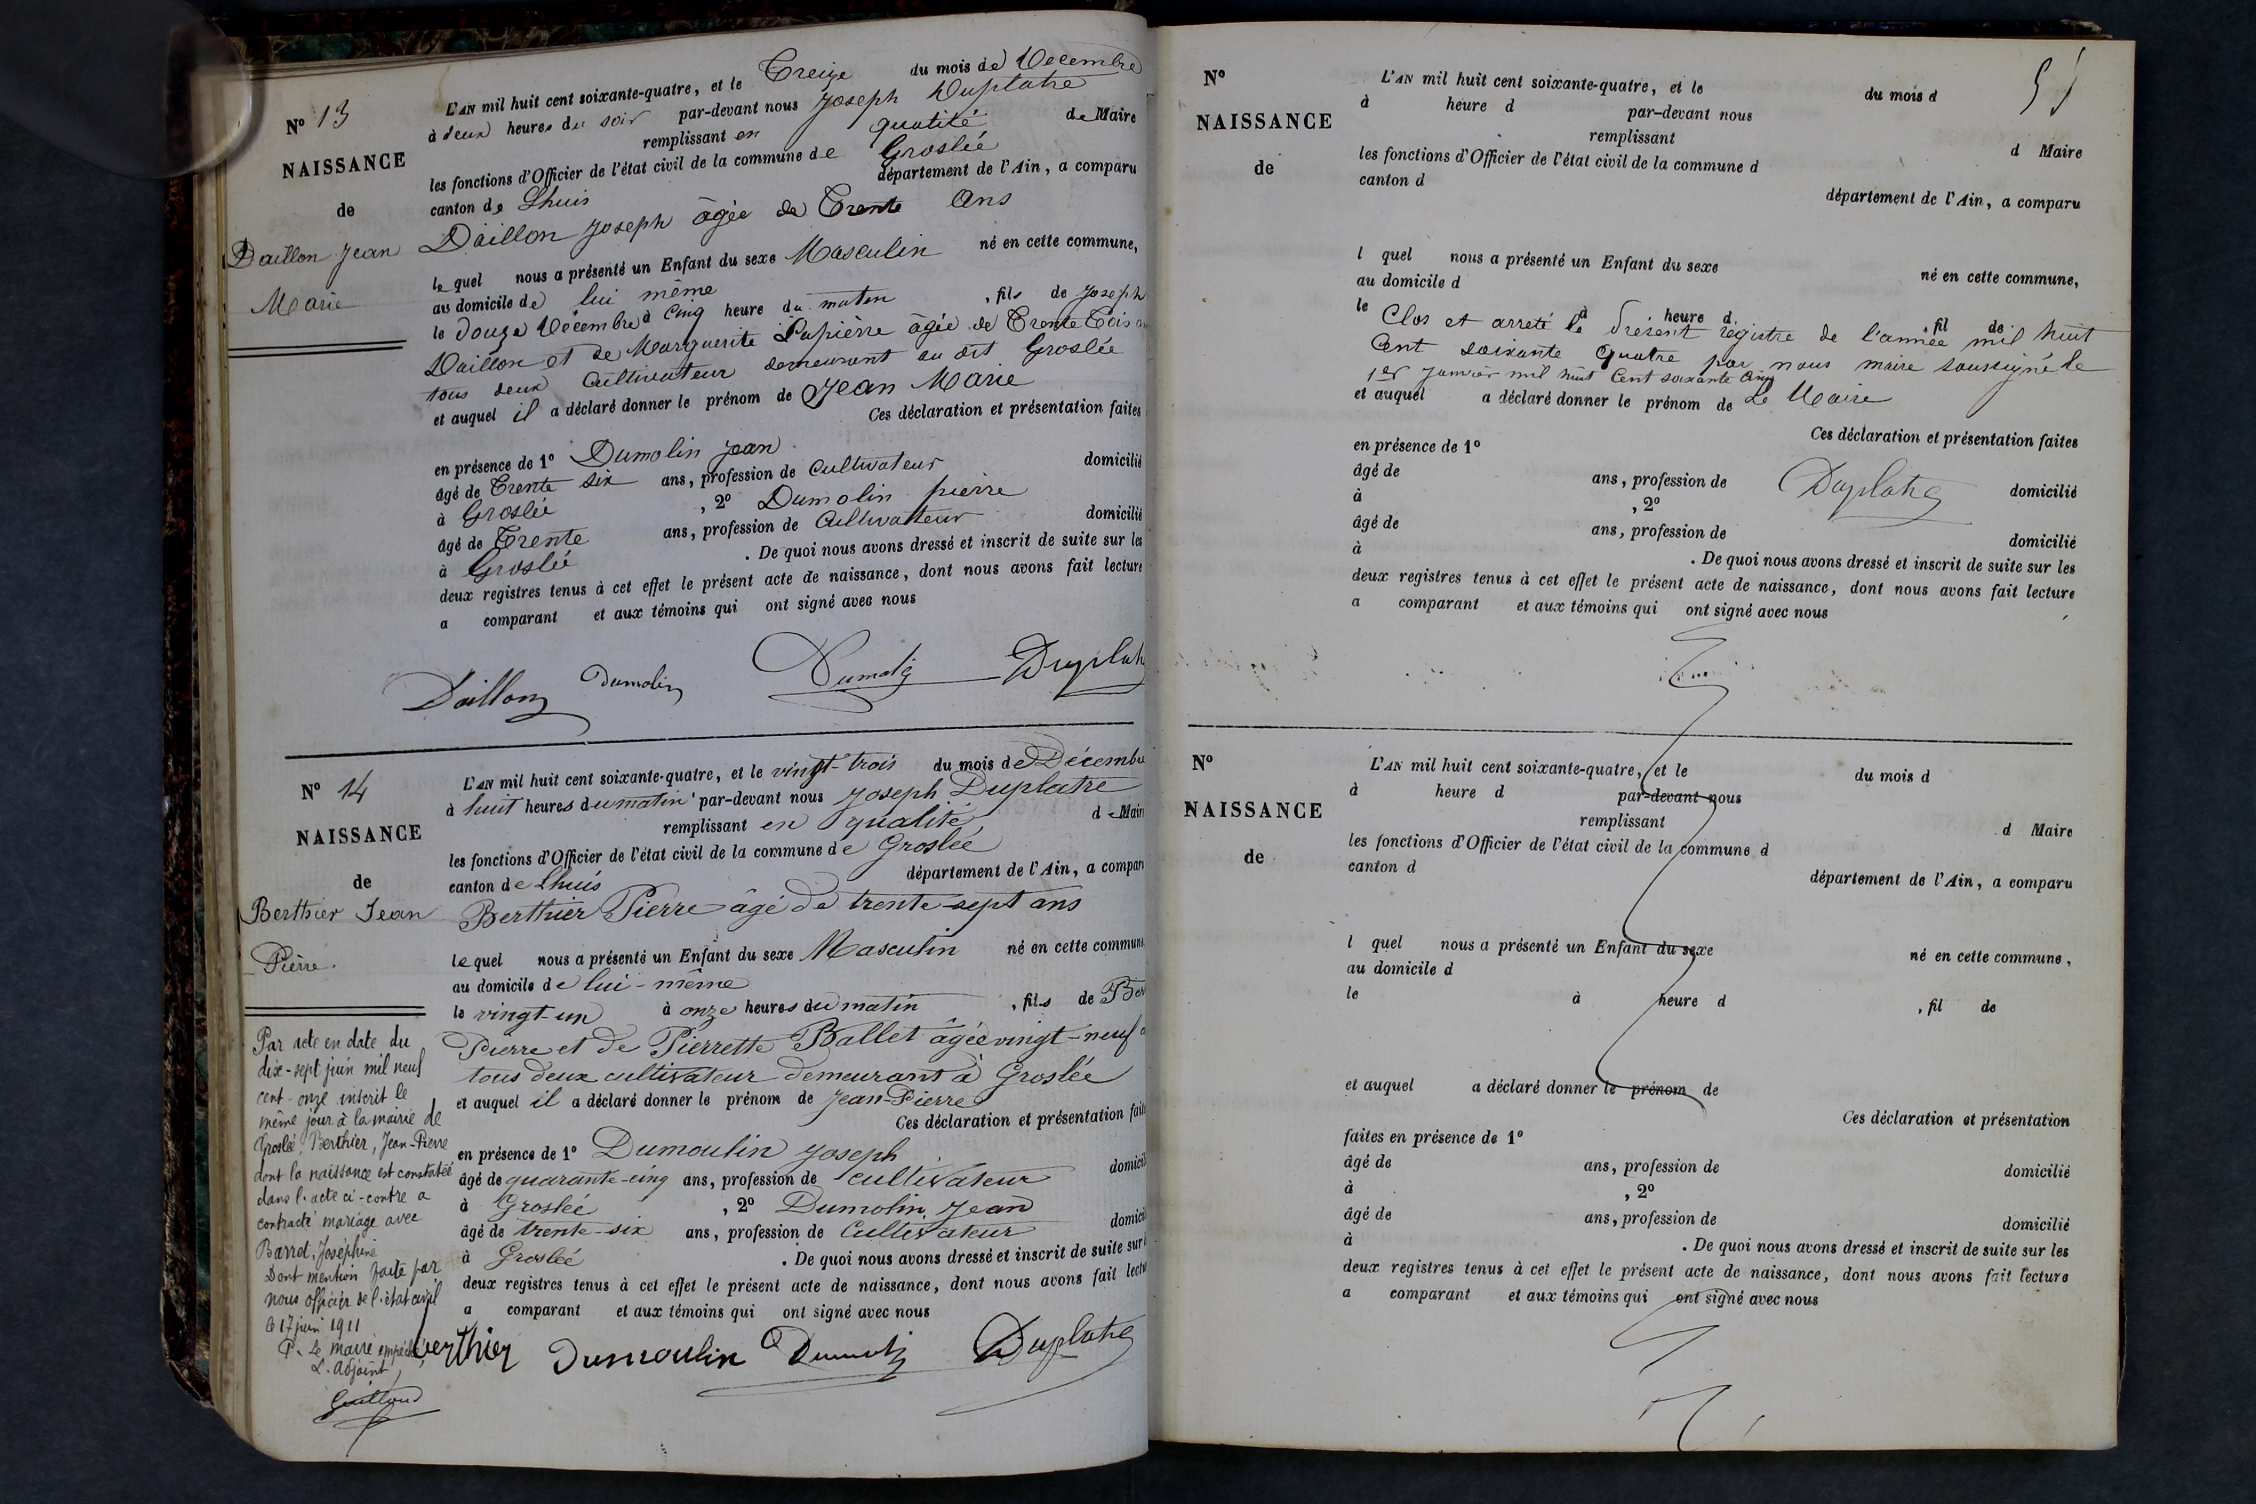 N° 13
NAISSANCE
de
Daillon Jean
Marie
L'AN mil huit cent soixante-quatre, et le Treize du mois de Décembre
à deux heures du soir par-devant nous Joseph Duplatre
remplissant en qualité de Maire
les fonctions d'Officier de l'état civil de la commune de Groslée
canton de Lhuis département de l'Ain, a comparu
Daillon Joseph âgée de Trente Ans
le quel nous a présenté un Enfant du sexe Masculin né en cette commune,
au domicile de lui même
le douze Décembre à Cinq heure du matin , fils de Joseph
Daillon et de Marguerite Papièrre âgée de Trente Trois
tous deux Cultivateur demeurant au dit Groslée
et auquel il a déclaré donner le prénom de Jean Marie
Ces déclaration et présentation faites
en présence de 1° Dumolin Jean
âgé de Trente six ans, profession de Cultivateur domicilié
à Groslée , 2° Dumolin pierre
âgé de Trente ans, profession de Cultivateur domicilié
à Groslée . De quoi nous avons dressé et inscrit de suite sur les
deux registres tenus à cet effet le présent acte de naissance, dont nous avons fait lecture
a comparant et aux témoins qui ont signé avec nous
Daillon Dumolin Dumolin Duplatre
N° 14
NAISSANCE
de
Berthier Jean
Pierre.
L'AN mil huit cent soixante-quatre, et le vingt-trois du mois de Décembre
à huit heures du matin par-devant nous Joseph Duplatre
remplissant en qualité de Maire
les fonctions d'Officier de l'état civil de la commune de Groslée
canton de Lhuis département de l'Ain, a comparu
Berthier Pierre âgé de trente-sept ans
le quel nous a présenté un Enfant du sexe Masculin né en cette commune,
au domicile de lui-même
le vingt-un à onze heures du matin , fils de Ber
Pierre et de Pierrette Ballet âgée vingt-neuf
tous deux cultivateur demeurant à Groslée
et auquel il a déclaré donner le prénom de Jean-Pierre
Ces déclaration et présentation faite
en présence de 1° Dumoulin Joseph
âgé de quarante-cinq ans, profession de cultivateur domicilié
à Groslée , 2° Dumolin Jean
âgé de trente-six ans, profession de Cultivateur domicilié
à Groslée . De quoi nous avons dressé et inscrit de suite sur
deux registres tenus à cet effet le présent acte de naissance, dont nous avons fait lecture
a comparant et aux témoins qui ont signé avec nous
Berthier Dumoulin Dumolin Duplatre
Par acte en date du
dix-sept juin mil neuf
cent-onze inscrit le
même jour à la mairie de
Groslée, Berthier, Jean-Pierre
dont la naissance est constatée
dans l'acte ci-contre a
contracté mariage avec
Barrot, Joséphine
Dont mention faite par
nous officier de l'état civil
le 17 juin 1911
P. Le maire empêché
L'adjoint
Guillaud
N°
NAISSANCE
de
L'AN mil huit cent soixante-quatre, et le du mois d
à heure d par-devant nous
remplissant d Maire
les fonctions d'Officier de l'état civil de la commune d
canton d département de l'Ain, a comparu
l quel nous a présenté un Enfant du sexe né en cette commune,
au domicile d
le à heure d , fil de
Clos et arreté le présent registre de l'année mil huit
Cent soixante quatre par nous maire soussigné le
1er Janvier mil huit Cent soixante Cinq
et auquel a déclaré donner le prénom de Le Maire
Ces déclaration et présentation faites
en présence de 1°
âgé de ans, profession de Duplatre domicilié
à , 2°
âgé de ans, profession de domicilié
à . De quoi nous avons dressé et inscrit de suite sur les
deux registres tenus à cet effet le présent acte de naissance, dont nous avons fait lecture
a comparant et aux témoins qui ont signé avec nous
N°
NAISSANCE
de
L'AN mil huit cent soixante-quatre, et le du mois d
à heure d par-devant nous
remplissant d Maire
les fonctions d'Officier de l'état civil de la commune d
canton d département de l'Ain, a comparu
l quel nous a présenté un Enfant du sexe né en cette commune,
au domicile d
le à heure d , fil de
et auquel a déclaré donner le prénom de
Ces déclaration et présentation
faites en présence de 1°
âgé de ans, profession de domicilié
à , 2°
âgé de ans, profession de domicilié
à . De quoi nous avons dressé et inscrit de suite sur les
deux registres tenus à cet effet le présent acte de naissance, dont nous avons fait lecture
a comparant et aux témoins qui ont signé avec nous